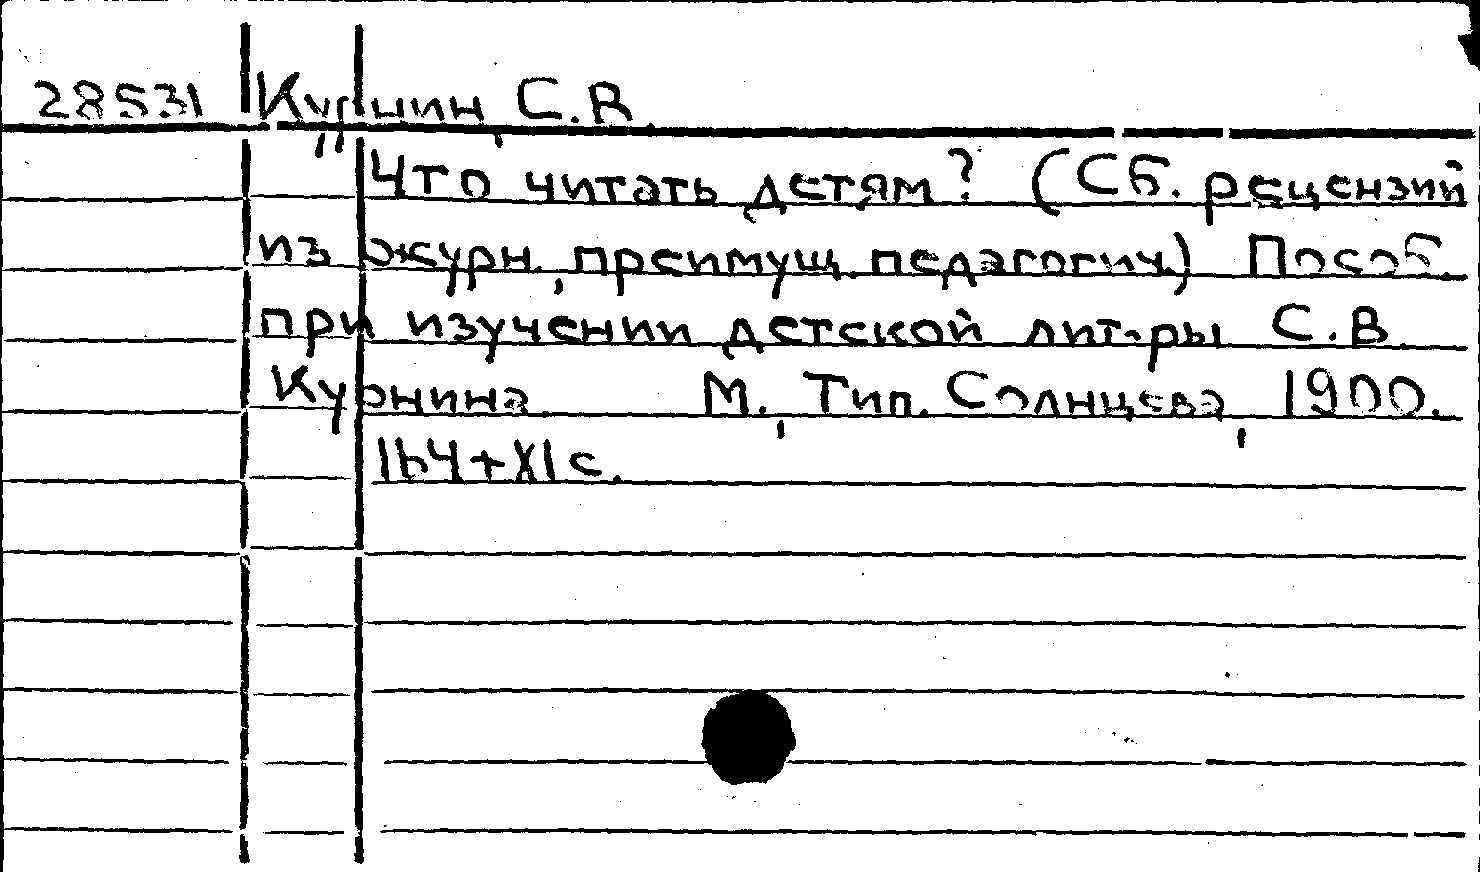 28531 Курнин, С.В.
Что читать детям? (Сб. рецензий
из журн., преимущ. педагогич.) Пособ.
при изучении детской лит-ры С.В.
Курнина. М., Тип. Солнцева, 1900.
164+XI с.